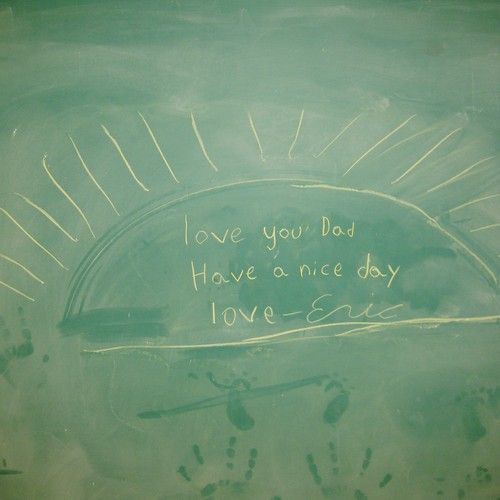 love you Dad
Have a nice day
love - Eric